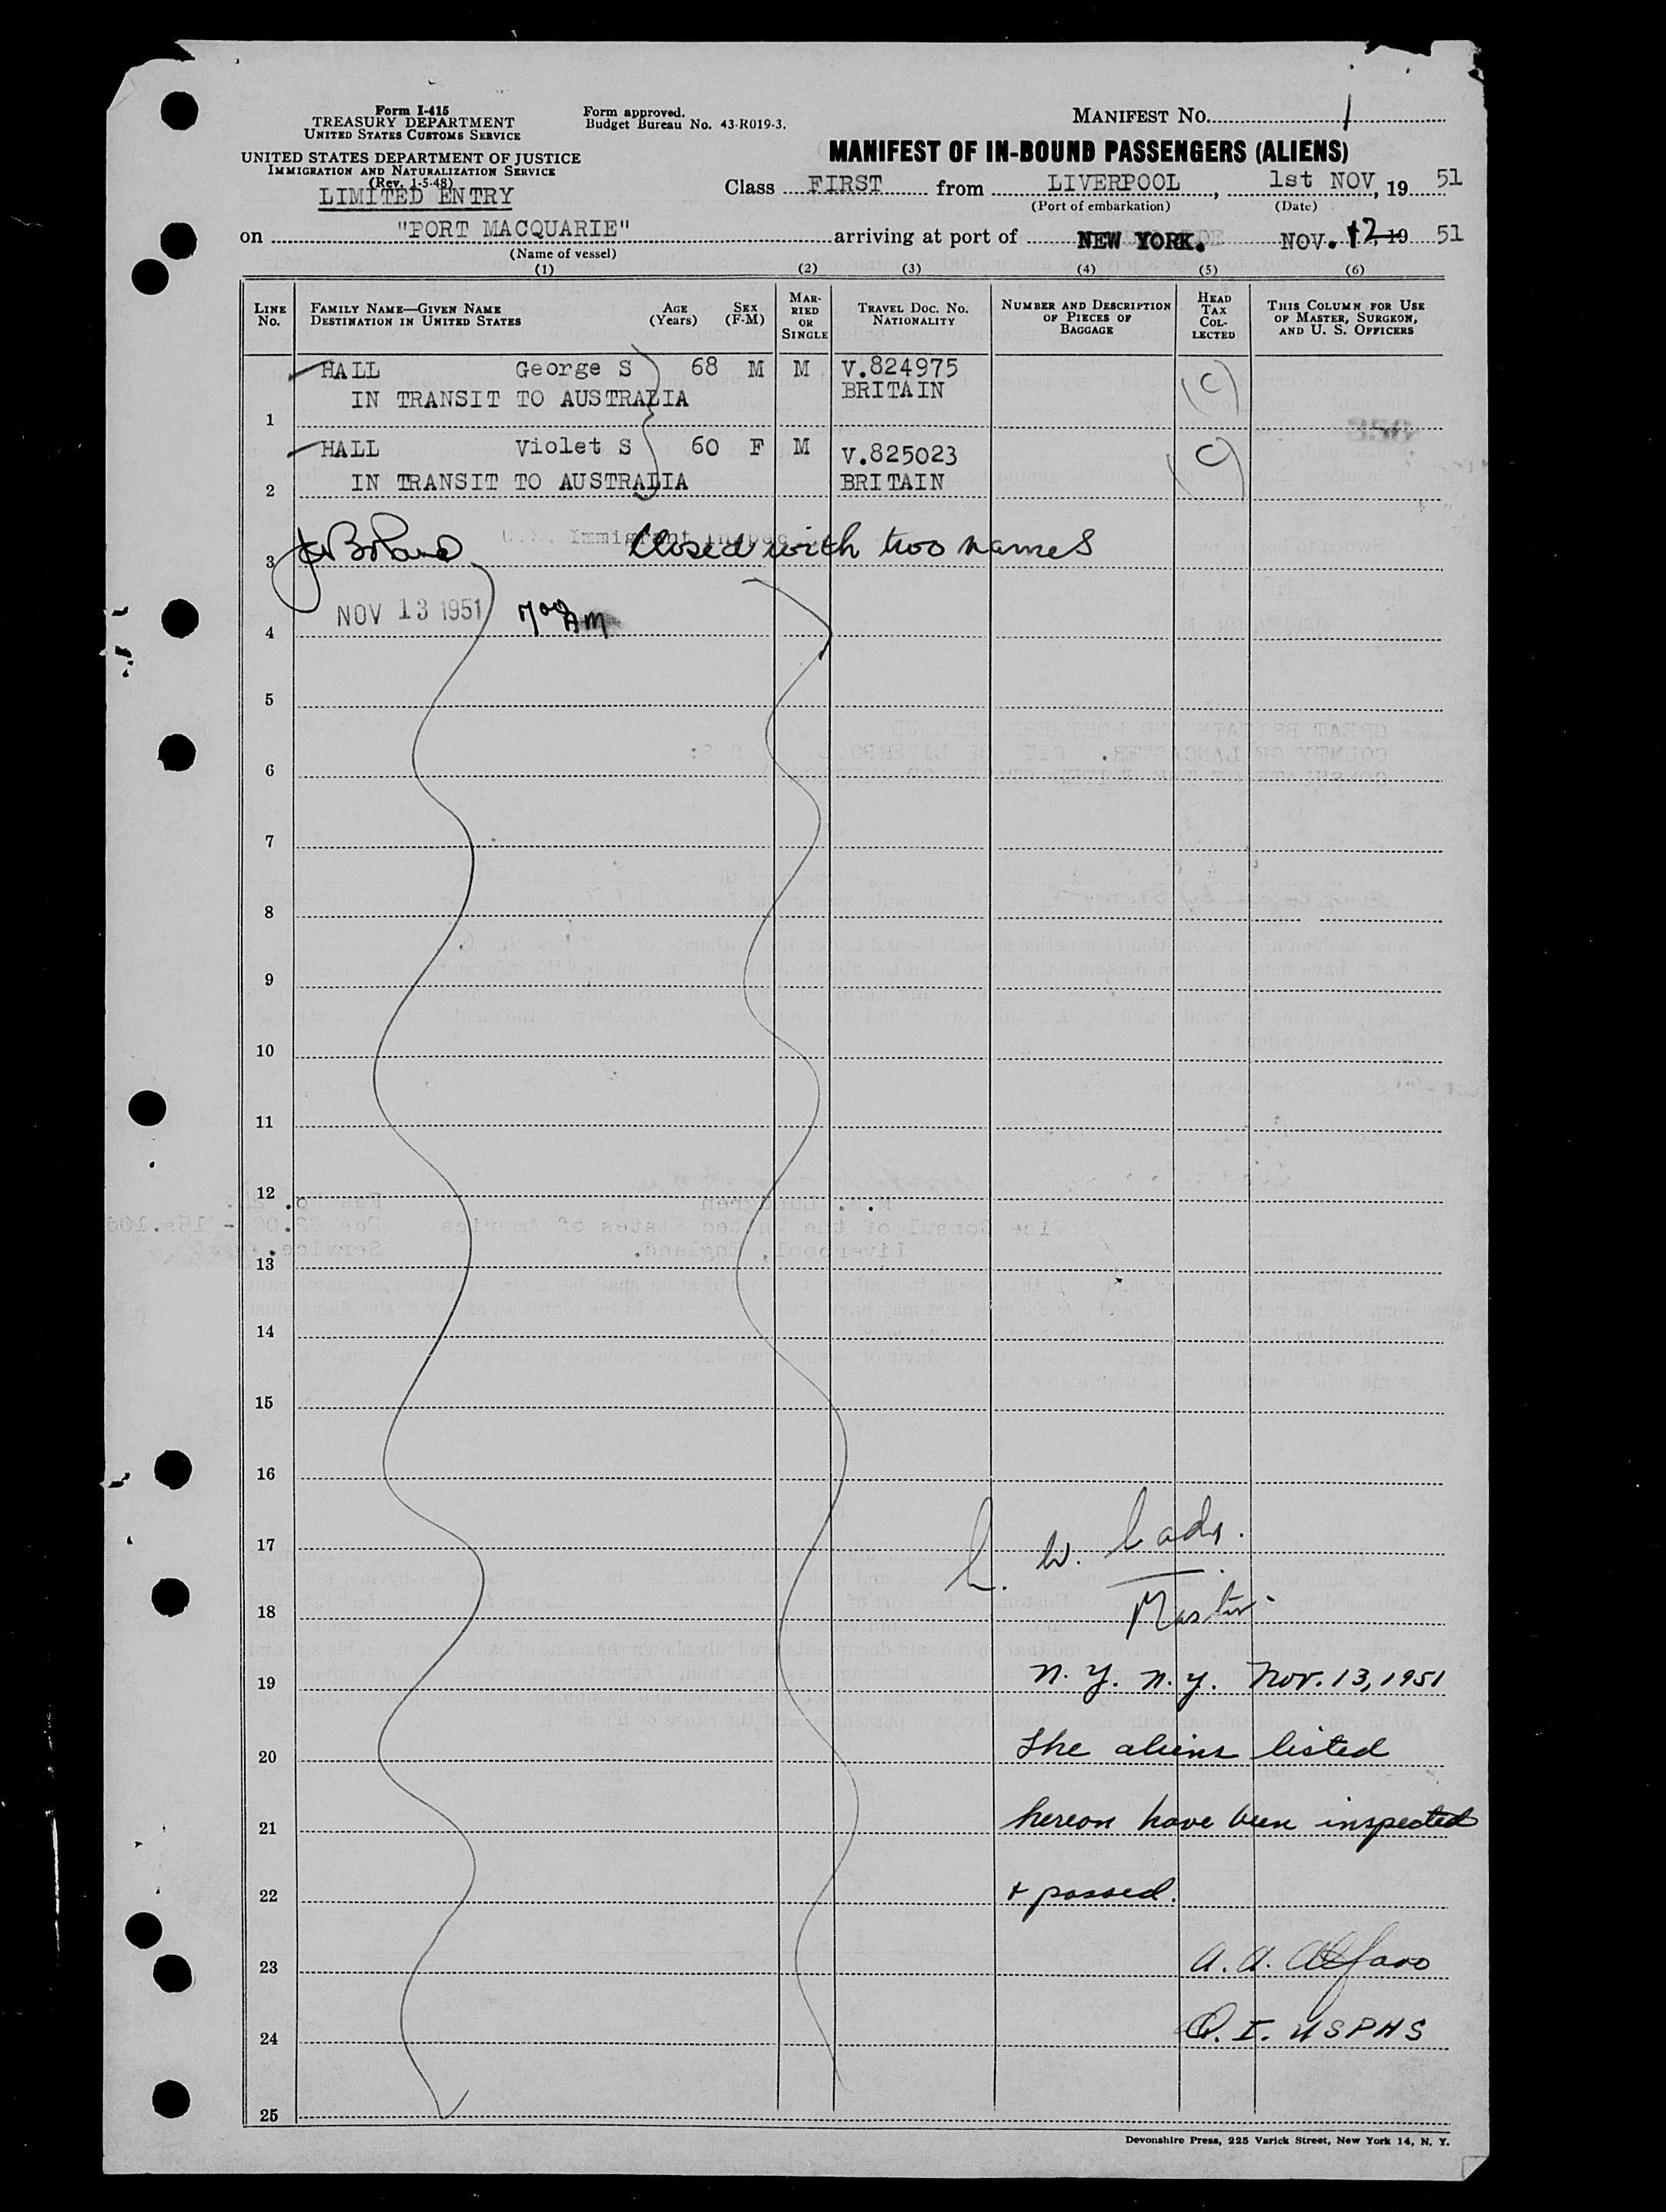 Form I-415
TREASURY DEPARTMENT
UNITED STATES CUSTOMS SERVICE
Form approved.
Budget Bureau No. 43-R019-3.
MANIFEST NO. 1
UNITED STATES DEPARTMENT OF JUSTICE
IMMIGRATION AND NATURALIZATION SERVICE
(Rev. 1-5-48)
LIMITED ENTRY
MANIFEST OF IN-BOUND PASSENGERS (ALIENS)
Class FIRST from LIVERPOOL, 1st NOV, 19 51
(Port of embarkation) (Date)
on "PORT MACQUARIE" arriving at port of NEW YORK. NOV. 12, 19 51
(Name of vessel)
(1) (2) (3) (4) (5) (6)
LINE No. FAMILY NAME—GIVEN NAME DESTINATION IN UNITED STATES AGE (Years) SEX (F-M) MARRIED OR SINGLE TRAVEL DOC. NO. NATIONALITY NUMBER AND DESCRIPTION OF PIECES OF BAGGAGE HEAD TAX COLLECTED THIS COLUMN FOR USE OF MASTER, SURGEON, AND U. S. OFFICERS
HALL George S 68 M M V.824975
IN TRANSIT TO AUSTRALIA BRITAIN
1
HALL Violet S 60 F M V.825023
2 IN TRANSIT TO AUSTRALIA BRITAIN
3 U.S. Immigrant Closed with two names
4 NOV 13 1951 7 00 AM
5
6
7
8
9
10
11
12
13
14
15
16
17
18 Master
19 N. Y. N.Y. Nov. 13, 1951
20 The aliens listed
21 hereon have been inspected
22 + passed.
23 A. A. Alfaro
24 Q. I. USPHS
25
Devonshire Press, 225 Varick Street, New York 14, N. Y.